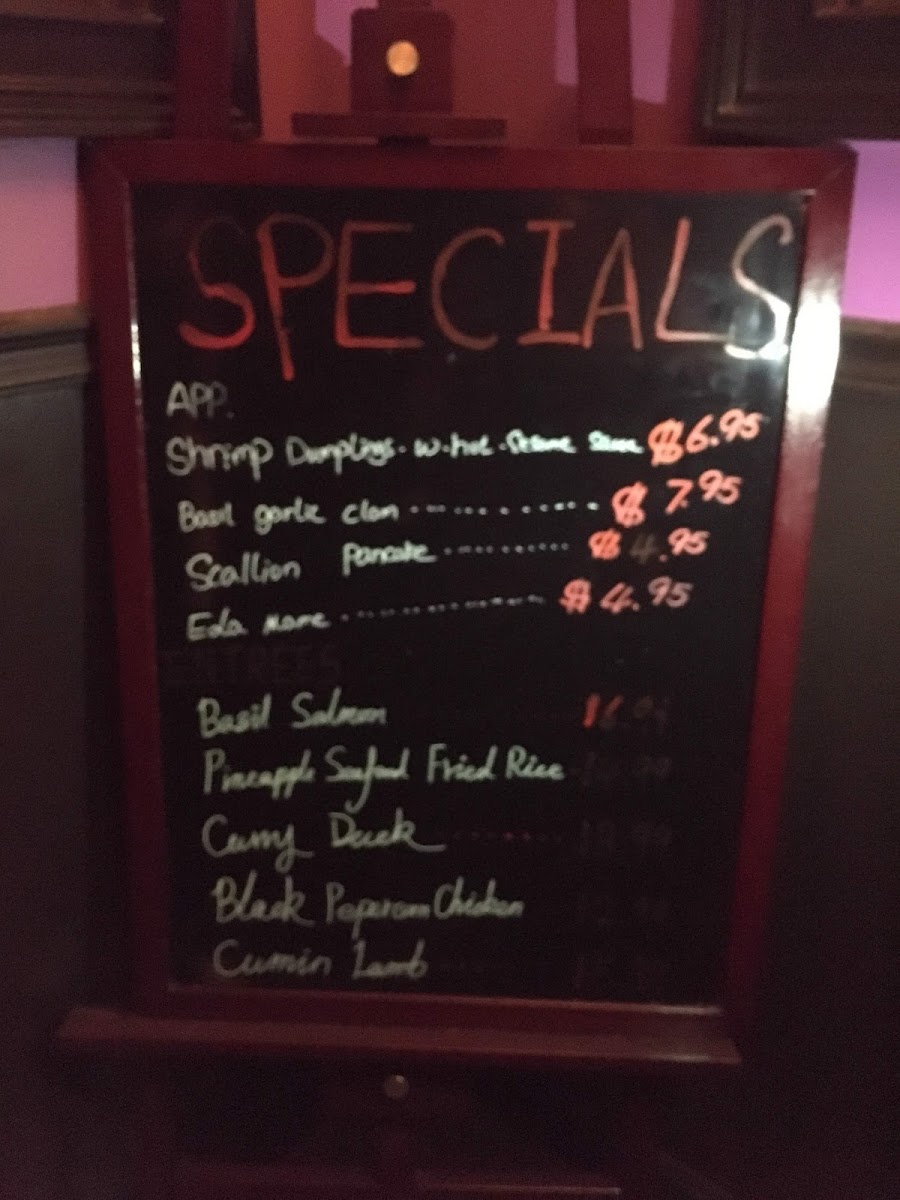 SPECIALS
APP.
Shrimp Dumplings. w. hot. Sesame Sauce $6.95
Basil garlic clam ............ $7.95
Scallion Pancake .......... $4.95
Eda mame ................ $4.95
ENTREES
Basil Salmon
Pineapple Seafood Fried Rice
Curry Duck ........
Black Peppercorn Chicken
Cumin Lamb